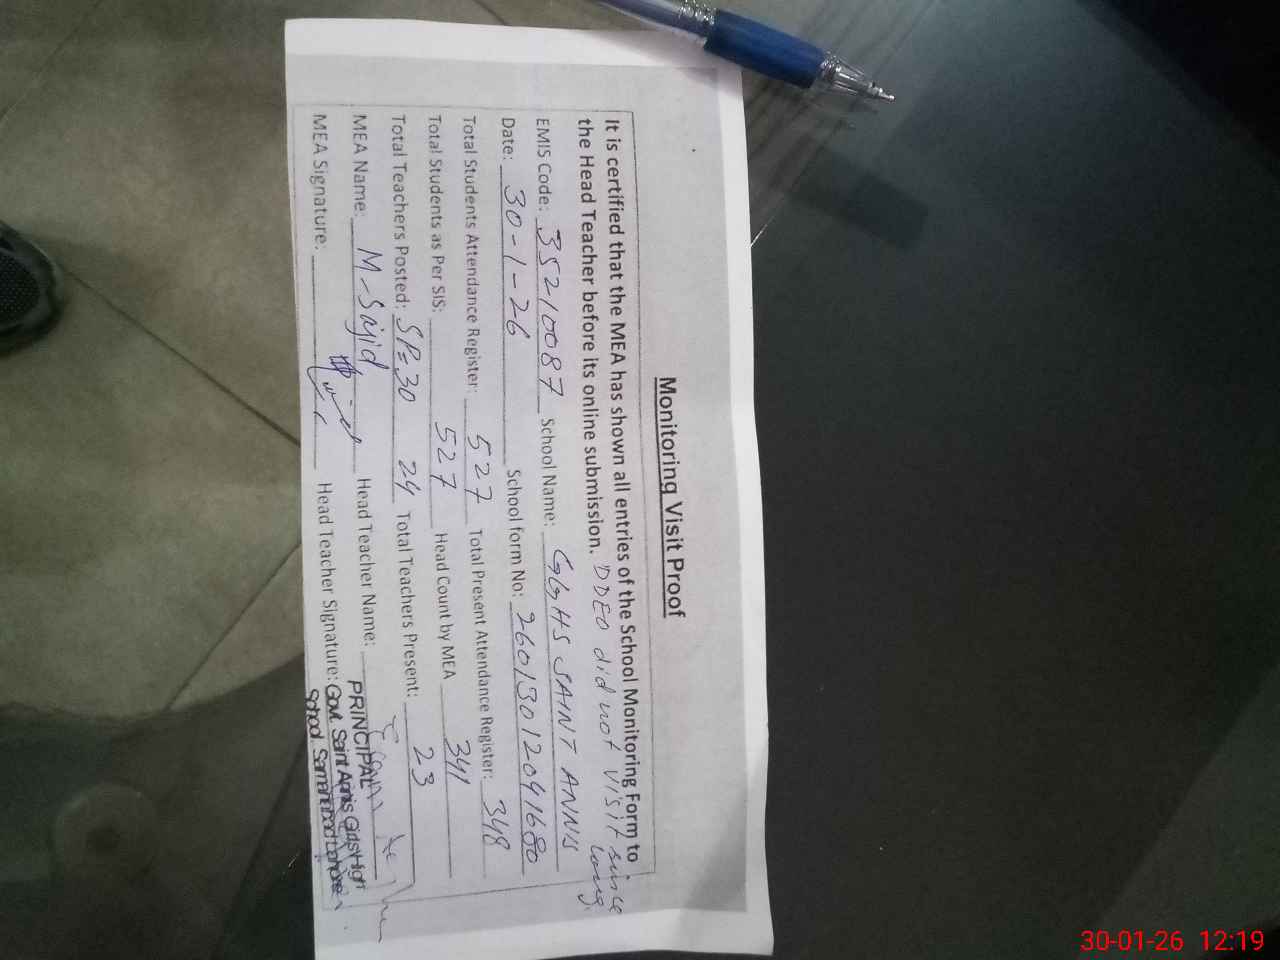 Monitoring Visit Proof
It is certified that the MEA has shown all entries of the School Monitoring Form to
the Head Teacher before its online submission. DDEO did not visit since long.
EMIS Code: 35210087 School Name: GGHS SAINT ANNIS
Date: 30-1-26 School form No: 26013012091680
Total Students Attendance Register: 527 Total Present Attendance Register: 348
Total Students as Per SIS: 527 Head Count by MEA 341
Total Teachers Posted: SP=30 24 Total Teachers Present: 23
MEA Name: M-Sajid Head Teacher Name:
MEA Signature: Head Teacher Signature:
PRINCIPAL
Govt. Saint Annis Girls High
School. Samanabad Lahore
30-01-26 12:19